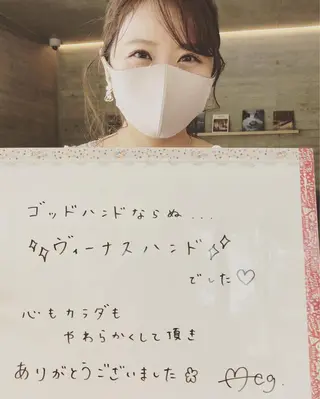 ゴッドハンドならぬ...
✨ヴィーナスハンド✨
でした♡
心もカラダも
やわらかくして頂き
ありがとうございました✿ Meg.